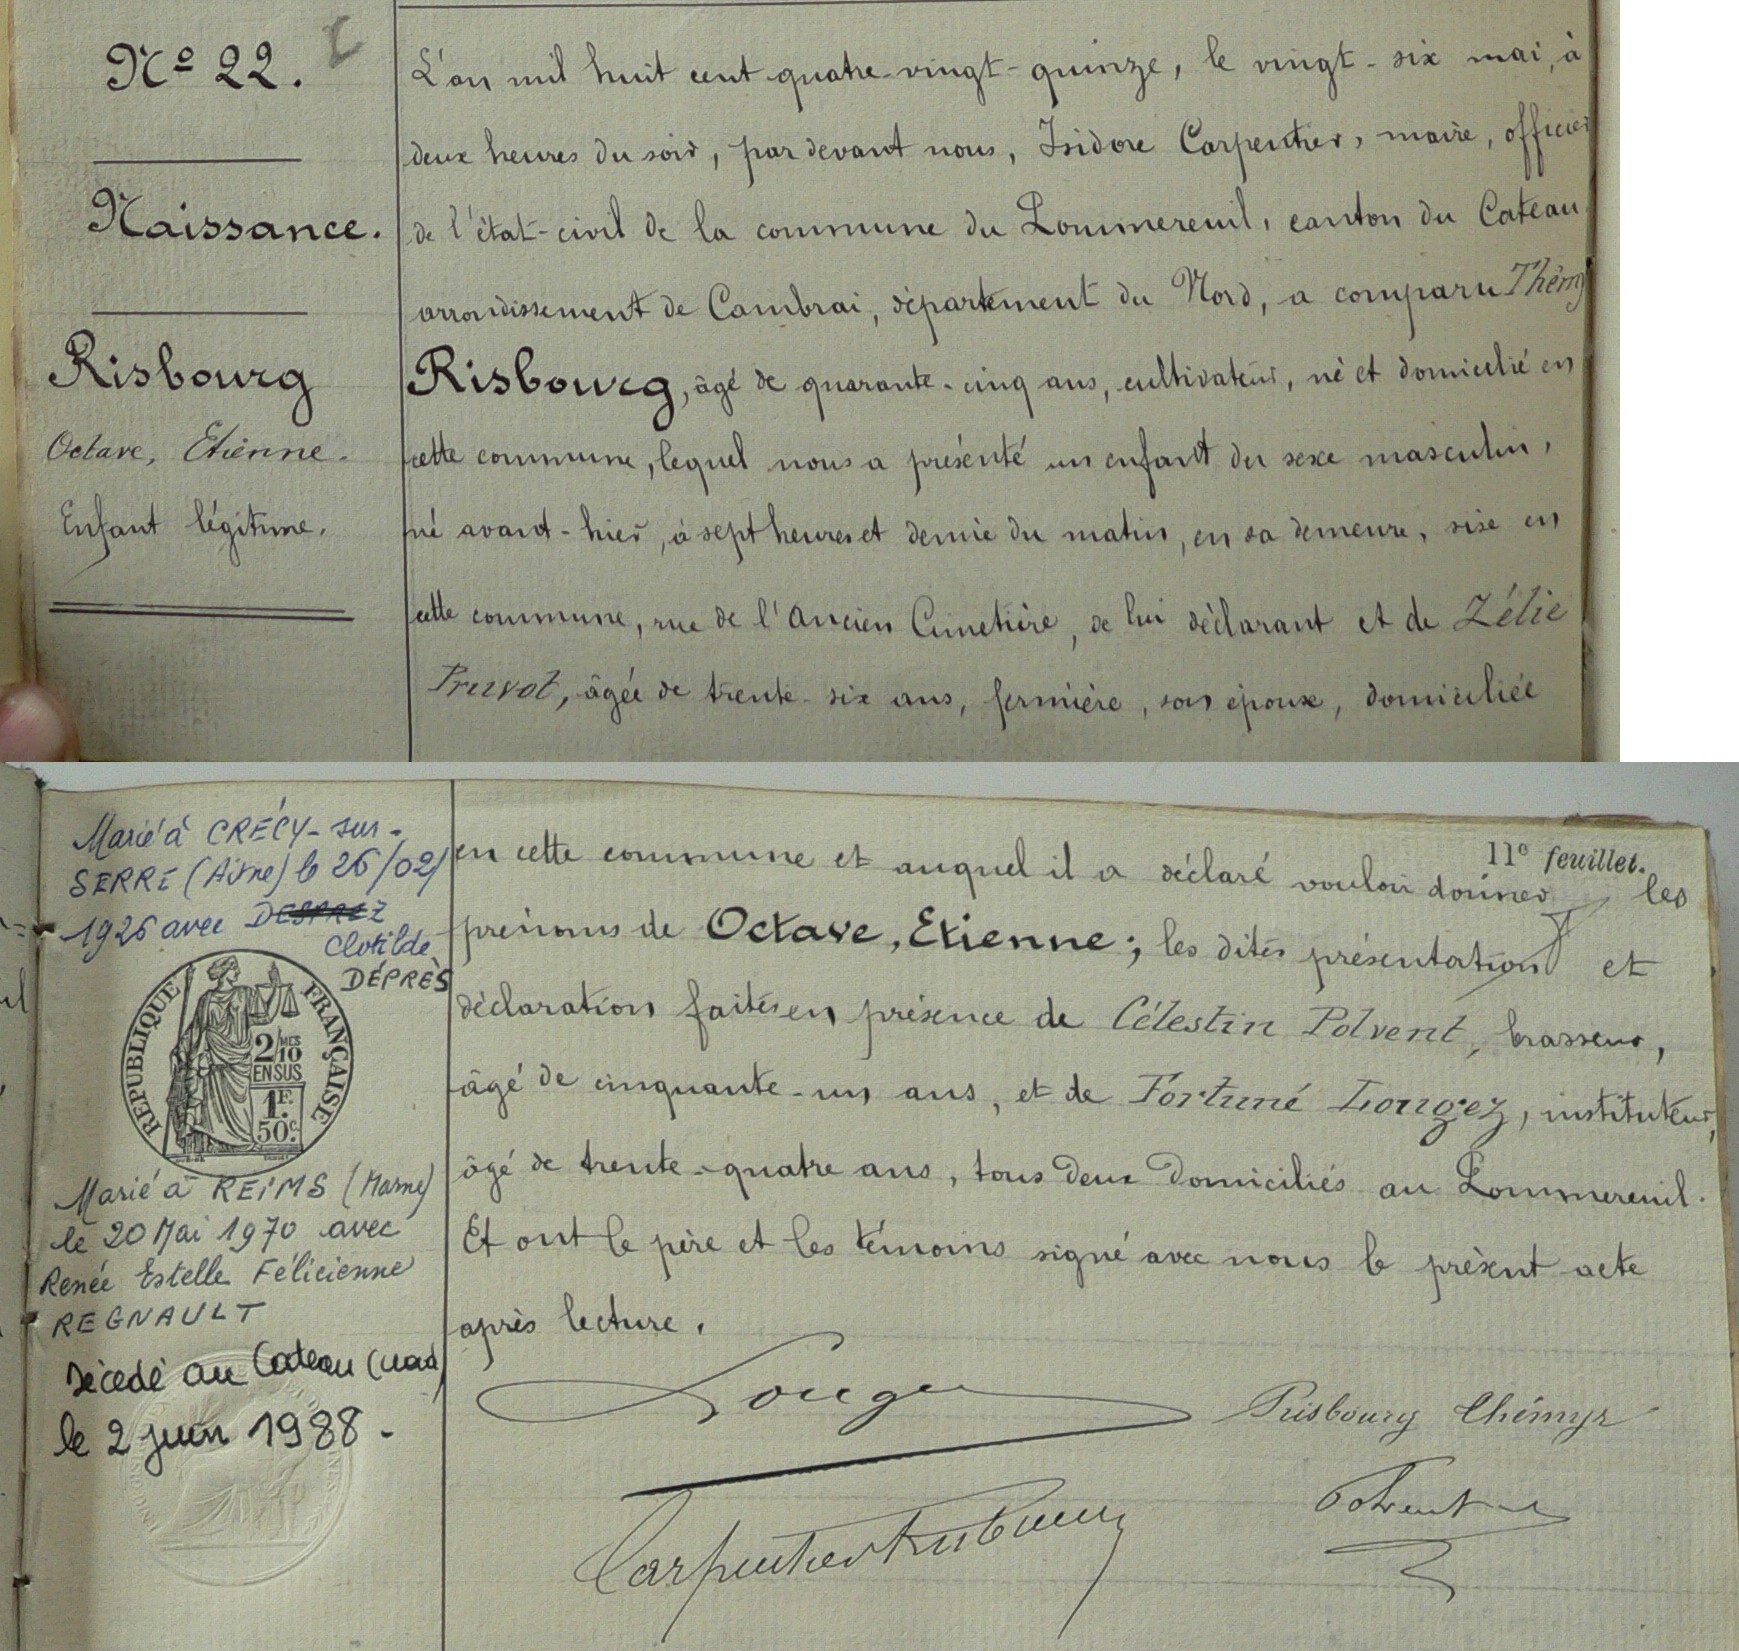 Nº 22.
Naissance.
Risbourg
Octave, Etienne.
Enfant légitime.
L'an mil huit cent quatre-vingt-quinze, le vingt-six mai, à
deux heures du soir, par devant nous, Isidore Carpentier, maire, officier
de l'état-civil de la commune du Pommereuil, canton du Cateau
arrondissement de Cambrai, département du Nord, a comparu Thémyr
Risbourg, âgé de quarante-cinq ans, cultivateur, né et domicilié en
cette commune, lequel nous a présenté un enfant du sexe masculin,
né avant-hier, à sept heures et demie du matin, en sa demeure, sise en
cette commune, rue de l'Ancien Cimetière, de lui déclarant et de Zélie
Pruvot, âgée de trente-six ans, fermière, son épouse, domiciliée
11e feuillet.
en cette commune et auquel il a déclaré vouloir donner les
prénoms de Octave, Etienne; les dites présentation et
déclaration faites en présence de Célestin Polvent, brasseur,
âgé de cinquante-un ans, et de Fortuné Longez, instituteur,
âgé de trente-quatre ans, tous deux domiciliés au Pommereuil.
Et ont le père et les témoins signé avec nous le présent acte
après lecture.
Longez
Risbourg Thémyr
Carpentier Risbourg
Polvent
Marié à CRÉCY-sur-
SERRE (Aisne) le 26/02/
1926 avec DESPREZ
Clotilde
DÉPRÈS
RÉPUBLIQUE FRANÇAISE
2/10 MES
EN SUS
1F.
50c.
Marié à REIMS (Marne)
le 20 Mai 1970 avec
Renée Estelle Félicienne
REGNAULT
Décédé au Cateau (Nord)
le 2 juin 1988.-